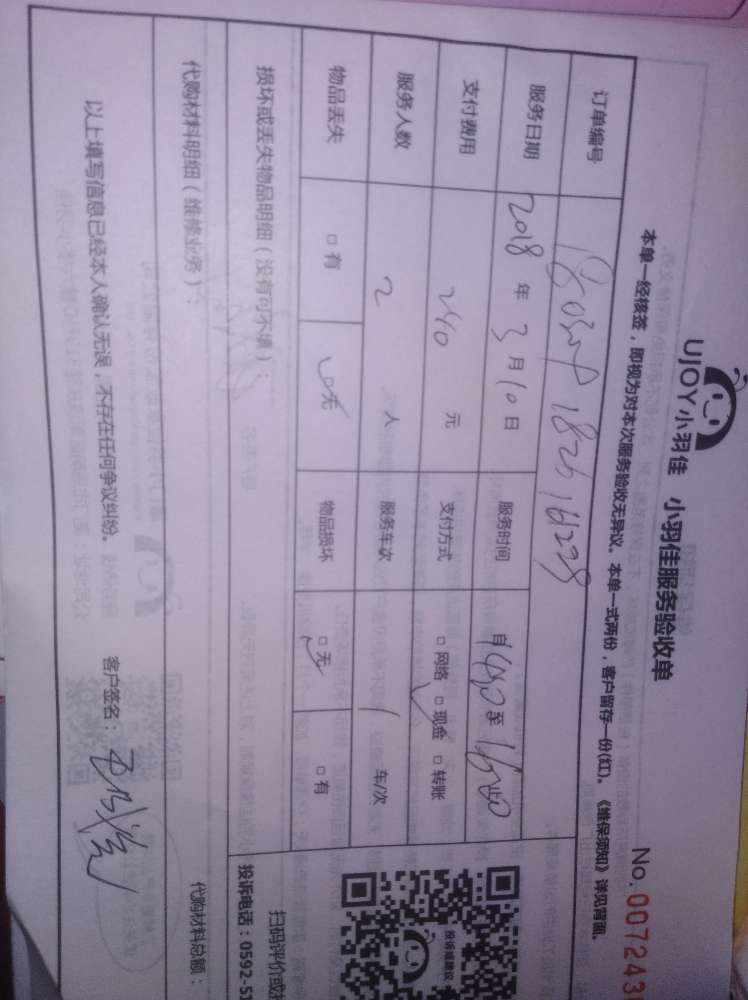 UJOY小羽佳 小羽佳服务验收单
No. 007243
本单一经核签，即视为对本次服务验收无异议。本单一式两份，客户留存一份(红)。《维保须知》详见背面。
订单编号
服务日期 2018 年 3 月 10 日 服务时间 自 至
支付费用 240 元 支付方式 □ 网络 □ 现金 □ 转账
服务人数 2 人 服务车次 1 车/次
物品丢失 □ 有 □ 无 物品损坏 □ 无 □ 有
投诉或建议
扫码评价或
损坏或丢失物品明细（没有可不填）：
投诉电话：0592-5
代购材料明细（维修业务）：
代购材料总额：
以上填写信息已经本人确认无误，不存在任何争议纠纷。 客户签名：